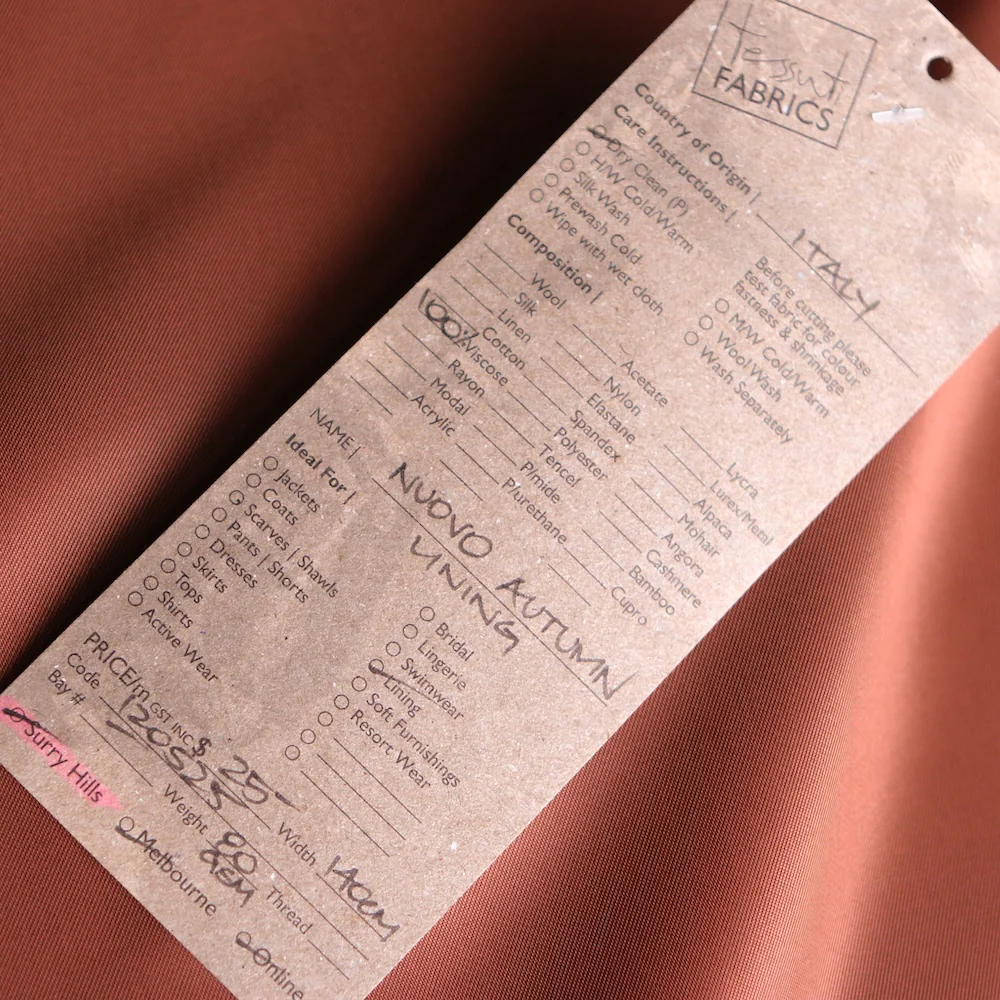 Tessuti
FABRICS
Country of Origin | ITALY
Care Instructions |
Dry Clean (P)
H/W Cold/Warm
Silk Wash
Prewash Cold
Wipe with wet cloth
Before cutting please
test fabric for colour
fastness & shrinkage
M/W Cold/Warm
Wool Wash
Wash Separately
Composition |
Wool
Silk
Linen
Cotton
100% Viscose
Rayon
Modal
Acrylic
Acetate
Nylon
Elastane
Spandex
Polyester
Tencel
P/mide
P/urethane
Lycra
Lurex/Metal
Alpaca
Mohair
Angora
Cashmere
Bamboo
Cupro
NAME | NUOVO AUTUMN
LINING
Ideal For |
Jackets
Coats
Scarves | Shawls
Pants | Shorts
Dresses
Skirts
Tops
Shirts
Active Wear
Bridal
Lingerie
Swimwear
Lining
Soft Furnishings
Resort Wear
PRICE/m GST INC $ 25-
Code 120525
Width 140cm
Bay #
Weight 80 GSM
Thread
Surry Hills
Melbourne
Online